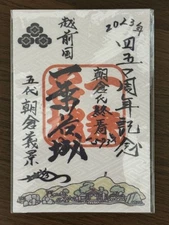 2023年
四五〇周年記念
朝倉氏終焉
越前国
一乗谷城
五代朝倉義景